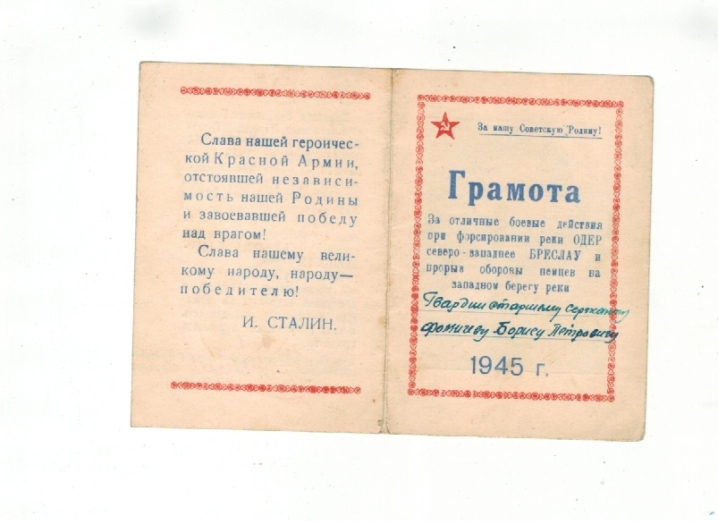 Слава нашей героичес-
кой Красной Армии,
отстоявшей независи-
мость нашей Родины
и завоевавшей победу
над врагом!
Слава нашему вели-
кому народу, народу—
победителю!
И. СТАЛИН.
За нашу Советскую Родину!
Грамота
За отличные боевые действия
при форсировании реки ОДЕР
северо-западнее БРЕСЛАУ и
прорыв обороны немцев на
западном берегу реки
Гвардии старшему сержанту
Фомичеву Борису Петровичу
1945 г.